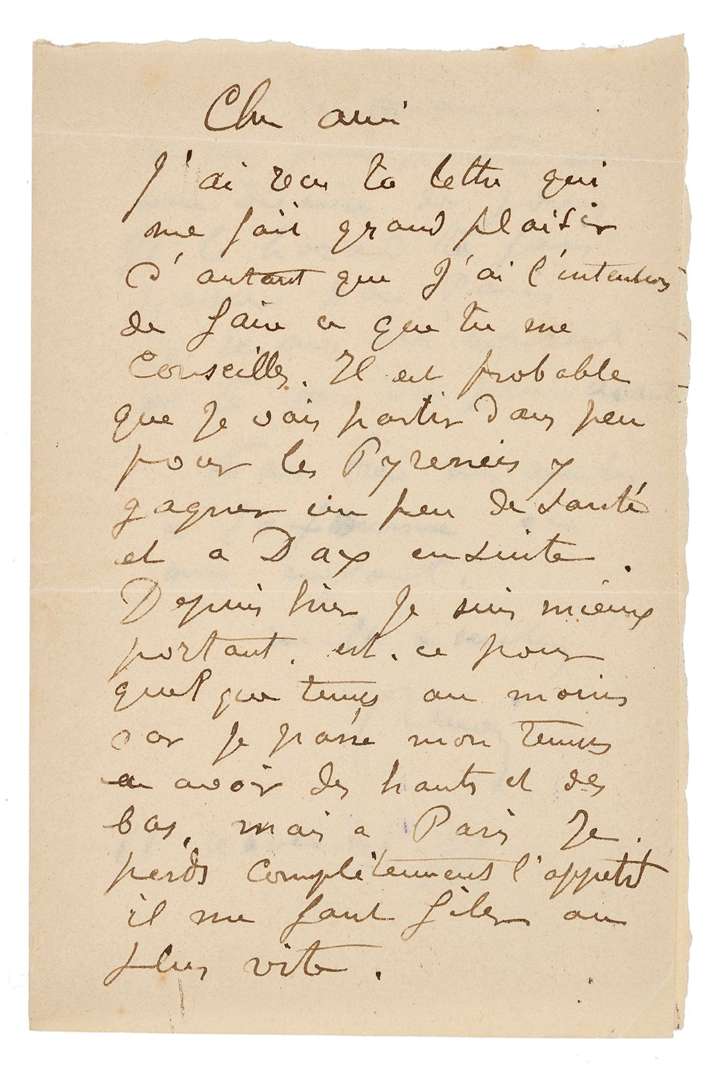 Cher ami
J'ai recu ta lettre qui
me fait grand plaisir
d'autant que J'ai l'intention
de faire ce que tu me
Conseilles. Il est probable
que Je vais partir dans peu
pour les Pyrenées y
gagner un peu de santé
et a Dax ensuite.
Depuis hier Je suis mieux
portant. est-ce pour
quelque temps au moins
car Je passe mon temps
a avoir des hauts et des
bas, mais a Paris Je
perds complètement l'appetit
il me faut filer au
plus vite.